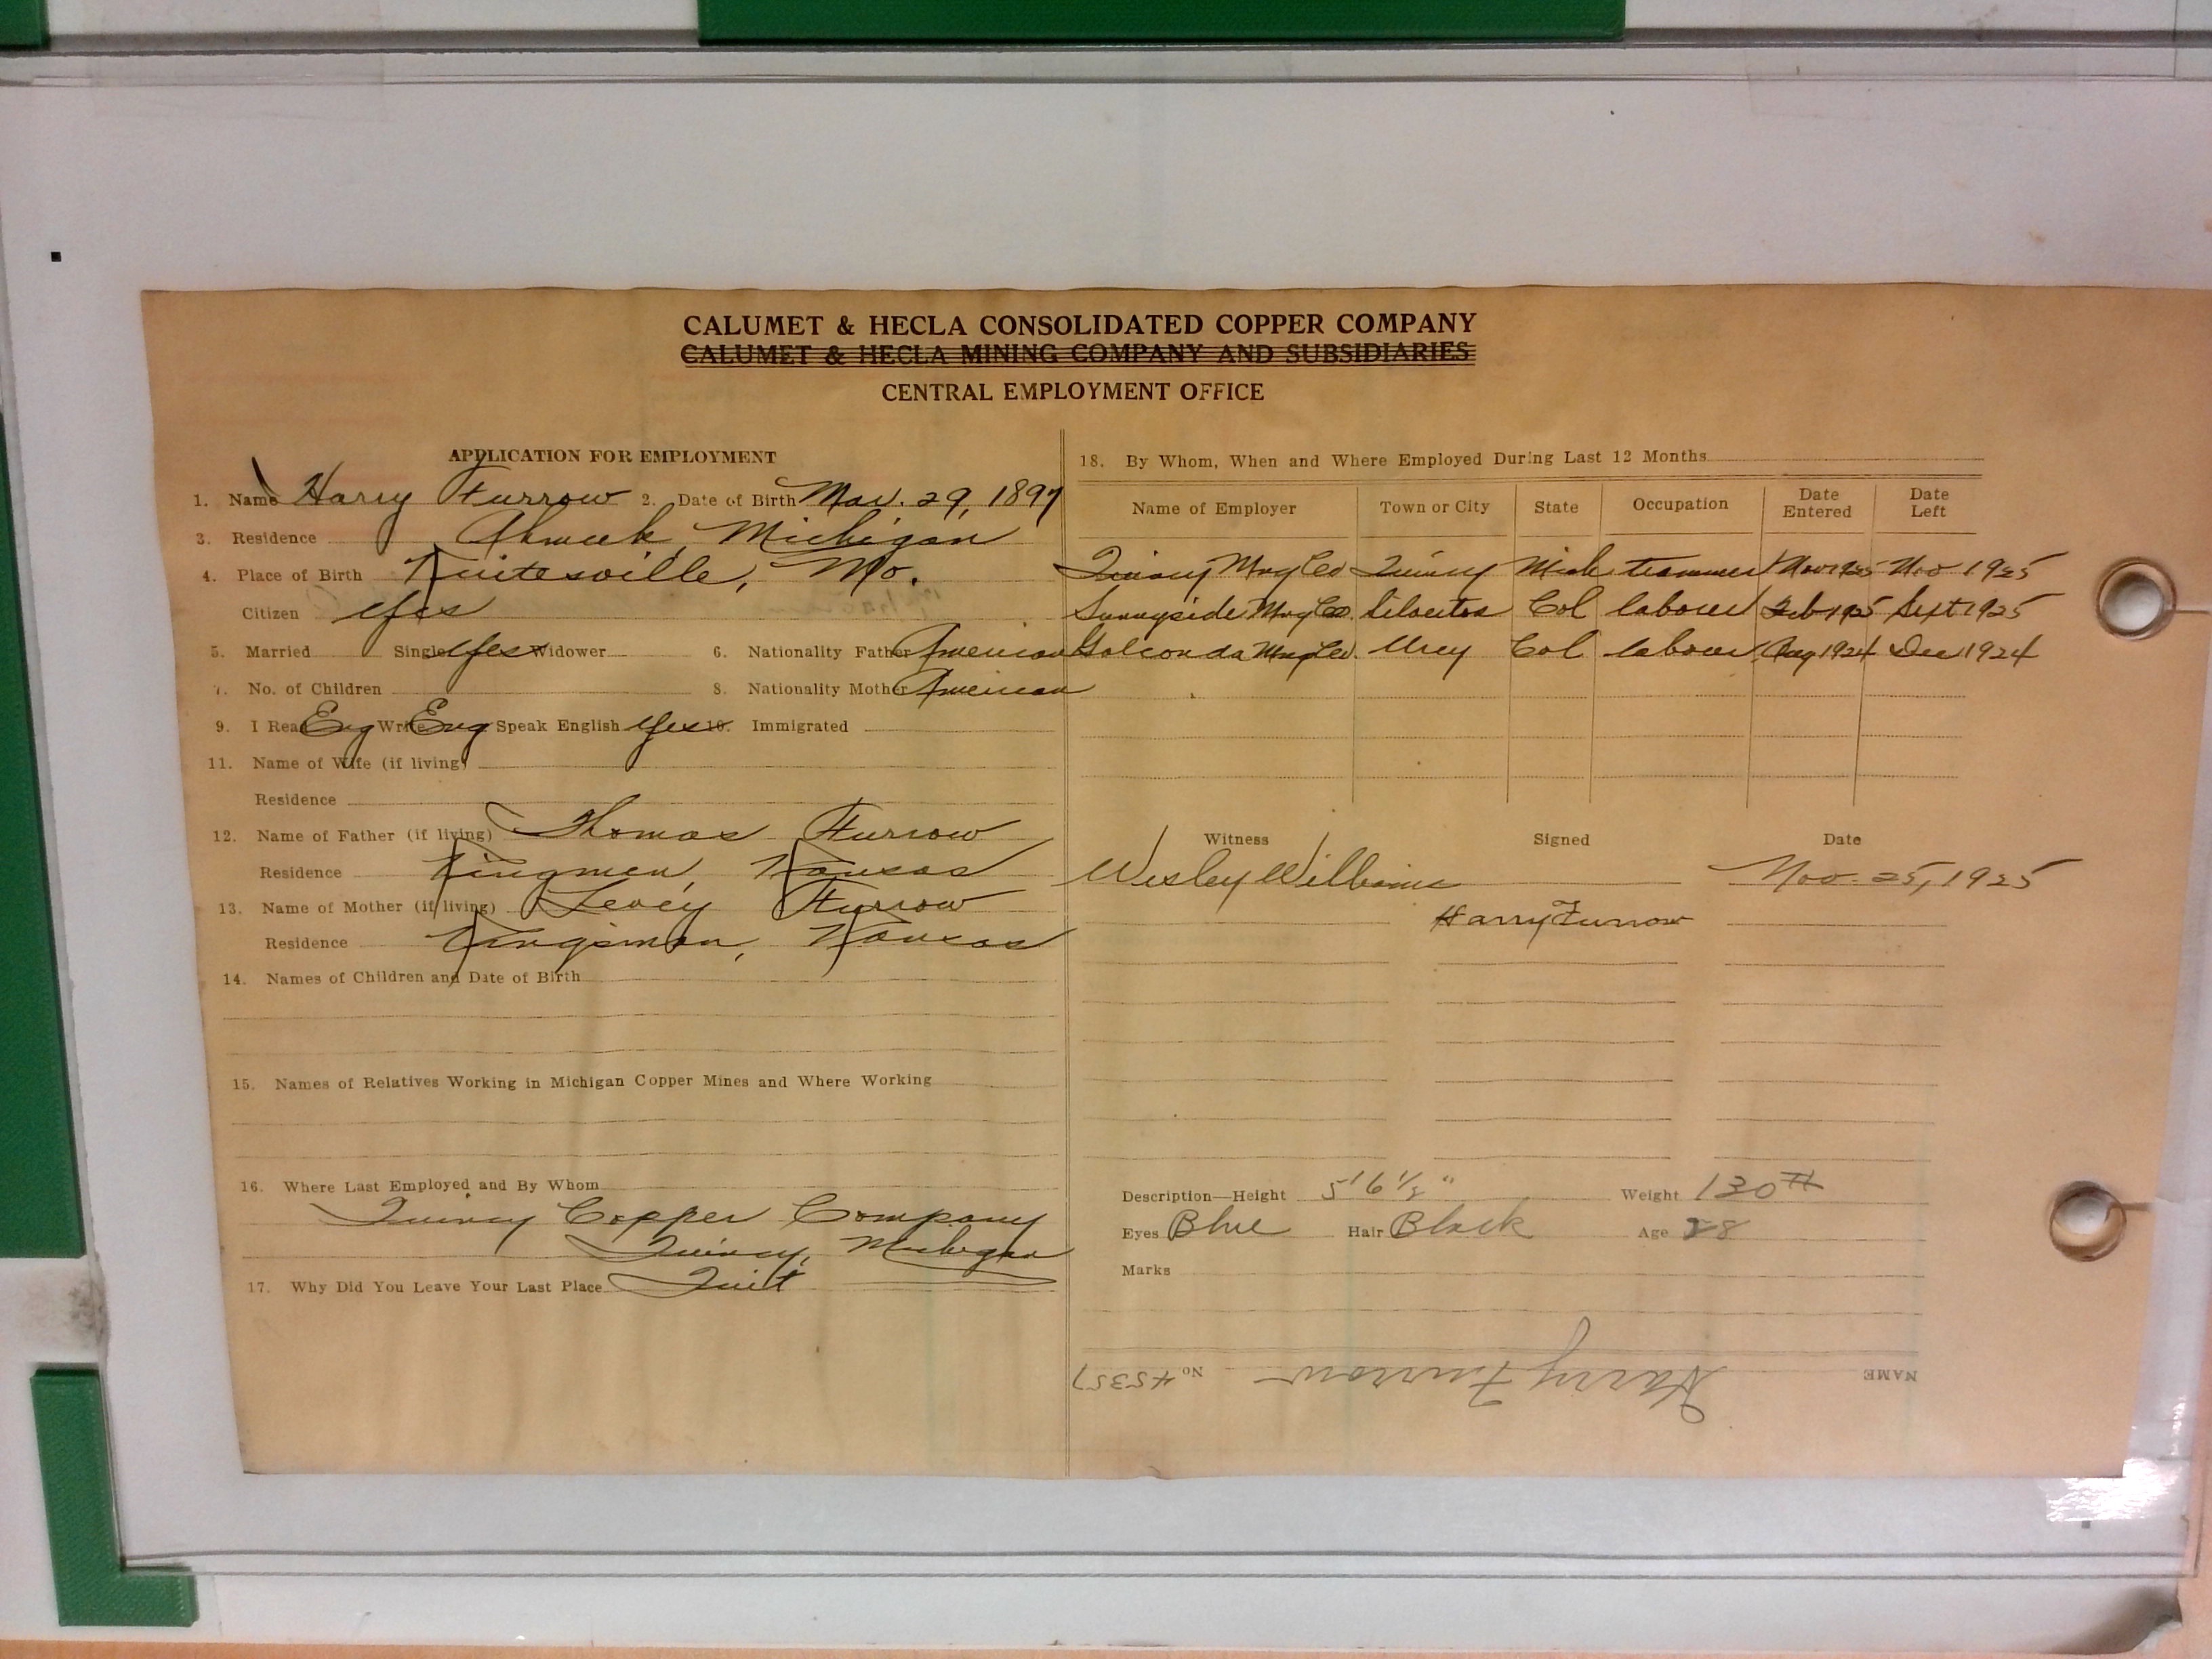 CALUMET & HECLA CONSOLIDATED COPPER COMPANY
CALUMET & HECLA MINING COMPANY AND SUBSIDIARIES
CENTRAL EMPLOYMENT OFFICE
APPLICATION FOR EMPLOYMENT
1. Name Harry Furrow 2. Date of Birth Mar. 29, 1897
3. Residence Ahmeek, Michigan
4. Place of Birth Knitesville, Mo.
Citizen Yes
5. Married Single Yes Widower 6. Nationality Father American
7. No. of Children 8. Nationality Mother American
9. I Read Eng Write Eng Speak English Yes 10. Immigrated
11. Name of Wife (if living)
Residence
12. Name of Father (if living) Thomas Furrow
Residence Kingmen, Kansas
13. Name of Mother (if living) Levey Furrow
Residence Kingsman, Kansas
14. Names of Children and Date of Birth
15. Names of Relatives Working in Michigan Copper Mines and Where Working
16. Where Last Employed and By Whom
Quincy Copper Company
Quincy, Michigan
17. Why Did You Leave Your Last Place Quit
18. By Whom, When and Where Employed During Last 12 Months
Name of Employer Town or City State Occupation Date Entered Date Left
Quincy Mng Co Quincy Mich trammer Nov 1925 Nov 1925
Sunnyside Mng Co. Silverton Col labourer Feb 1925 Sept 1925
Golconda Mng Co. Urey Col labourer Aug 1924 Dec 1924
Witness Signed Date
Wesley Williams Nov. 25, 1925
Harry Furrow
Description—Height 5' 6 1/2" Weight 130 #
Eyes Blue Hair Black Age 28
Marks
NAME Harry Furrow No 45357